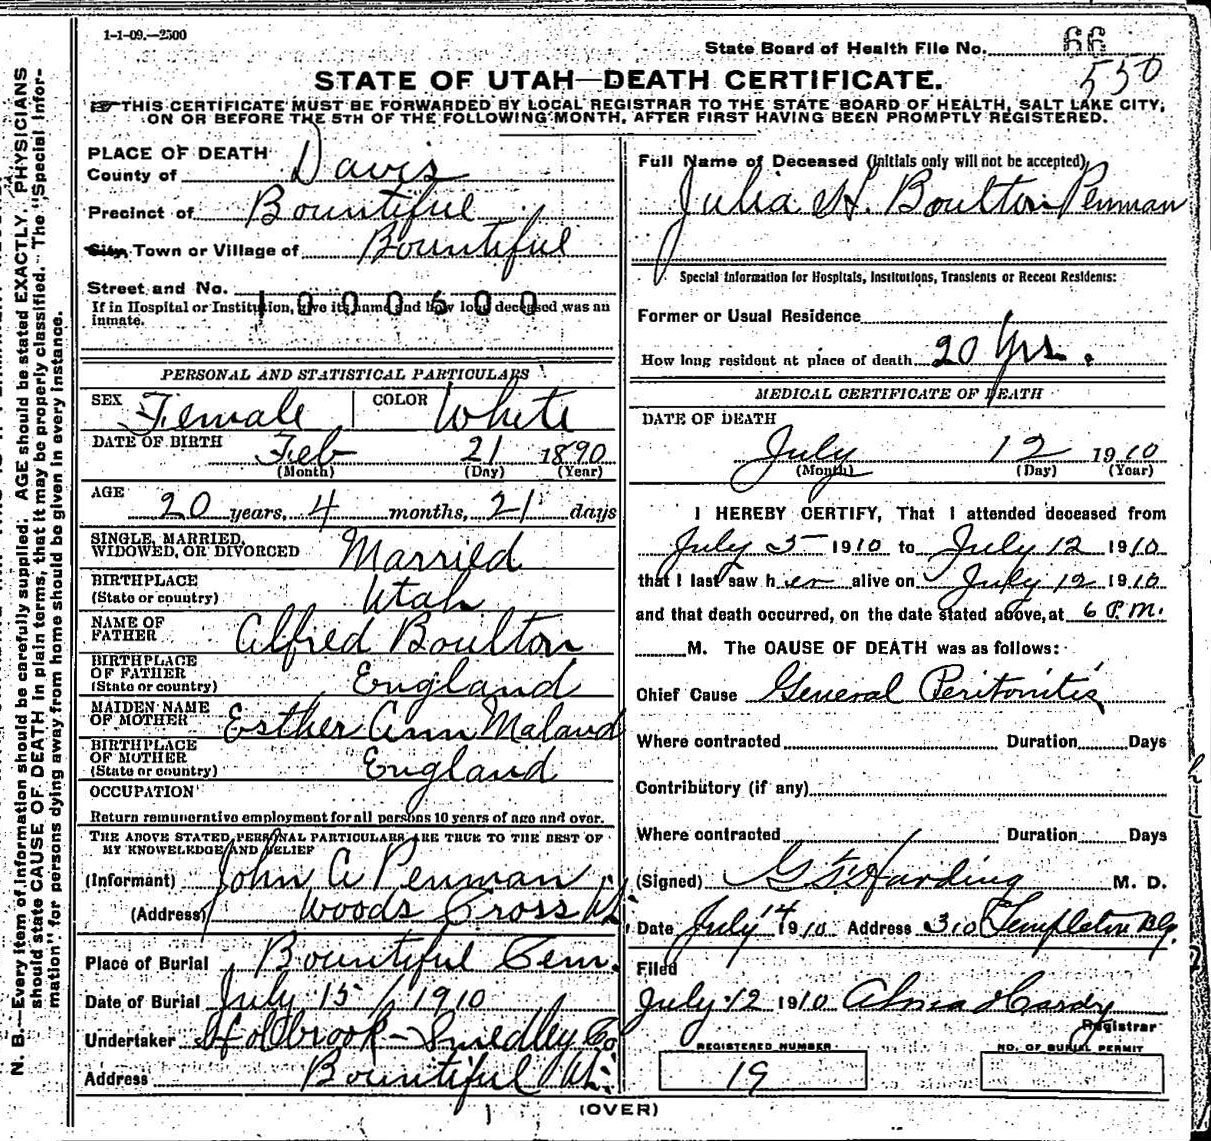 1-1-09.—2500
State Board of Health File No. 66
550
STATE OF UTAH—DEATH CERTIFICATE.
THIS CERTIFICATE MUST BE FORWARDED BY LOCAL REGISTRAR TO THE STATE BOARD OF HEALTH, SALT LAKE CITY,
ON OR BEFORE THE 5TH OF THE FOLLOWING MONTH, AFTER FIRST HAVING BEEN PROMPTLY REGISTERED.
N. B.—Every item of information should be carefully supplied. AGE should be stated EXACTLY. PHYSICIANS
should state CAUSE OF DEATH in plain terms, that it may be properly classified. The "Special Infor-
mation" for persons dying away from home should be given in every instance.
PLACE OF DEATH
County of Davis
Precinct of Bountiful
City, Town or Village of Bountiful
Street and No.
1000600
If in Hospital or Institution, give its name and how long deceased was an
inmate.
PERSONAL AND STATISTICAL PARTICULARS
SEX Female COLOR White
DATE OF BIRTH Feb 21 1890
(Month) (Day) (Year)
AGE
20 years, 4 months, 21 days
SINGLE, MARRIED,
WIDOWED, OR DIVORCED Married
BIRTHPLACE
(State or country) Utah
NAME OF
FATHER Alfred Boulton
BIRTHPLACE
OF FATHER
(State or country) England
MAIDEN NAME
OF MOTHER Esther Ann Maland
BIRTHPLACE
OF MOTHER
(State or country) England
OCCUPATION
Return remunerative employment for all persons 10 years of age and over.
THE ABOVE STATED PERSONAL PARTICULARS ARE TRUE TO THE BEST OF
MY KNOWELKDGE AND BELIEF
(Informant) John A Penman
(Address) Woods Cross Ut
Place of Burial Bountiful Cem.
Date of Burial July 15 1910
Undertaker Holbrook-Smedley Co
Address Bountiful Ut.
Full Name of Deceased (Initials only will not be accepted)
Julia H. Boulton Penman
Special Information for Hospitals, Institutions, Transients or Recent Residents:
Former or Usual Residence
How long resident at place of death 20 Yrs.
MEDICAL CERTIFICATE OF DEATH
DATE OF DEATH
July 12 1910
(Month) (Day) (Year)
I HEREBY CERTIFY, That I attended deceased from
July 5 1910 to July 12 1910
that I last saw her alive on July 12 1910
and that death occurred, on the date stated above, at 6 P.M.
M. The CAUSE OF DEATH was as follows:
Chief Cause General Peritonitis
Where contracted Duration Days
Contributory (if any)
Where contracted Duration Days
(Signed) G F Harding M. D.
Date July 14 1910 Address 310 Templeton Blg.
Filed
July 12 1910 Alma Hardy
Registrar
REGISTERED NUMBER
19
NO. OF BURIAL PERMIT
(OVER)